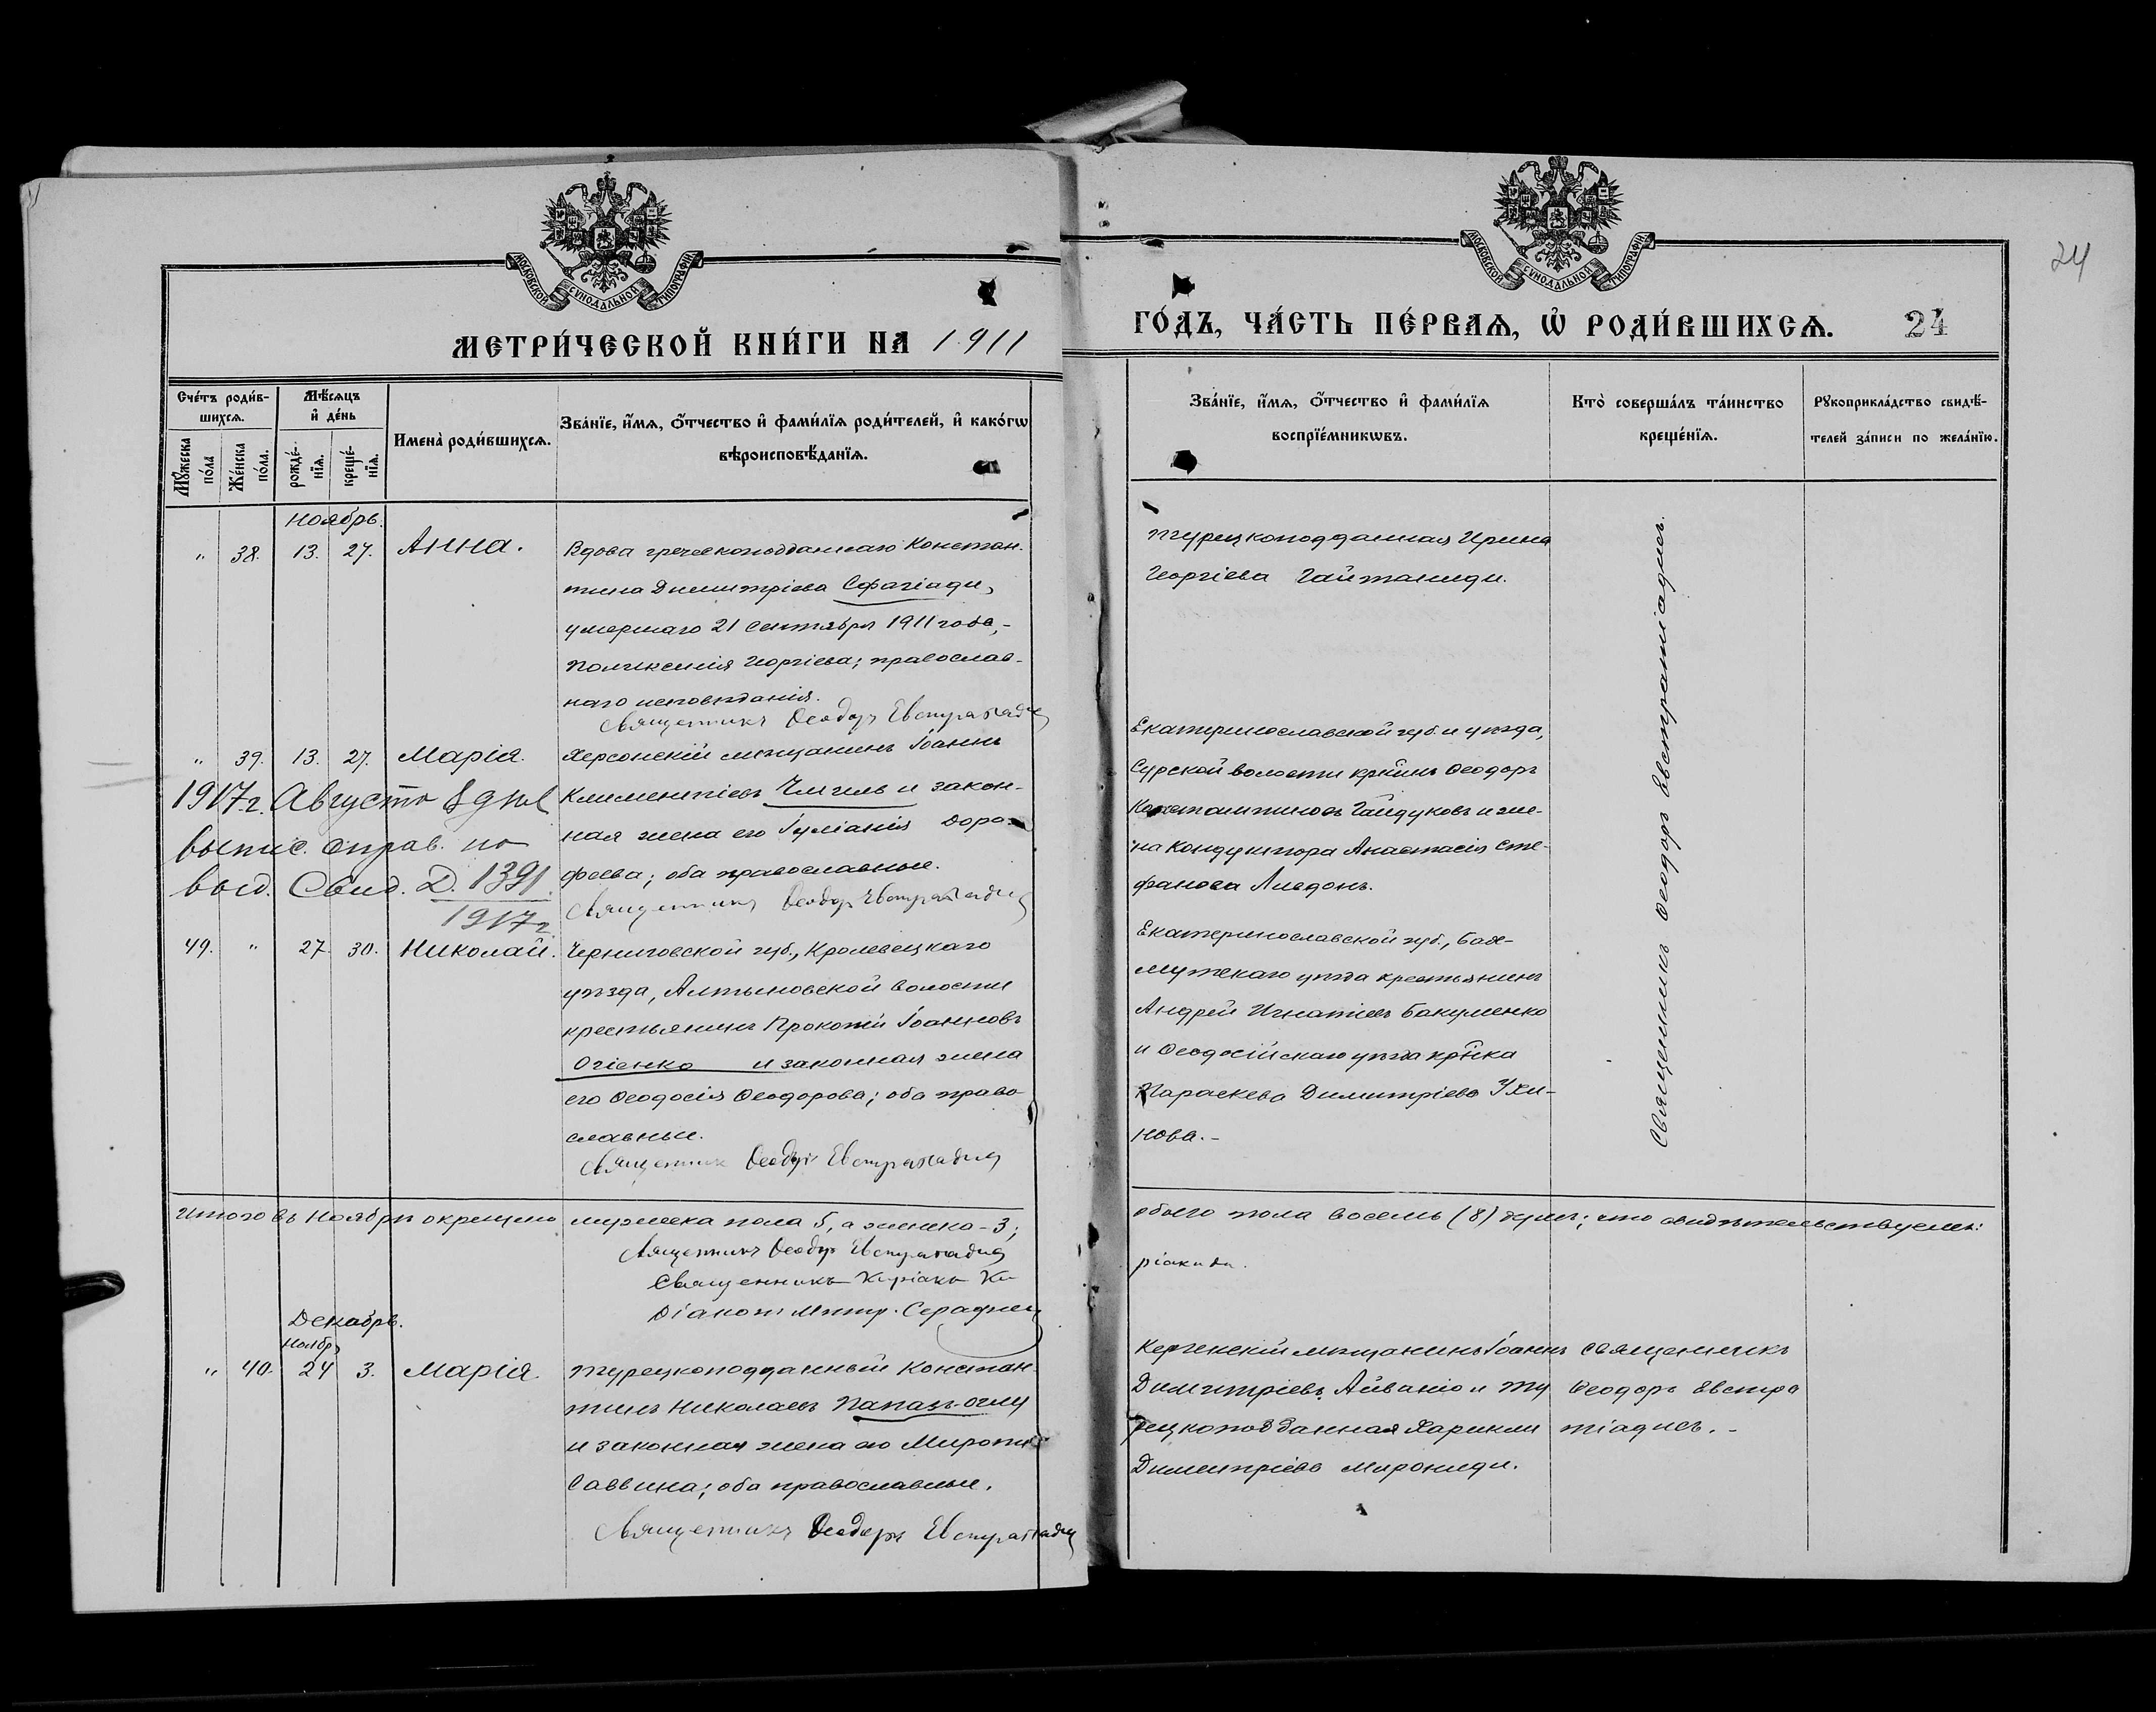 МОСКОВСКОЙ СУНОДАЛЬНОЙ ТИПОГРАФІИ
МЕТРИ́ЧЕСКОЙ КНИ́ГИ НА 1911
Сче́тъ роди́в-
шихсѧ.
Мѣ́сѧцъ
и҆ де́нь
Мꙋ́жеска
по́ла
Же́нска
по́ла.
рожде́-
нїѧ.
креще́-
нїѧ.
Имена̀ роди́вшихсѧ.
Зва́нїе, и҆́мѧ, ѻ҆́тчество и҆ фами́лїѧ роди́телей, и҆ како́гѡ
вѣроисповѣ́данїѧ.
Ноябрь.
" 38. 13. 27. Анна.
Вдова греческоподданнаго Констан-
тина Димитріева Сфагіади,
умершаго 21 Сентября 1911 года,-
Поликсенія Георгіева; православ-
наго исповѣданія.
Священникъ Ѳеодоръ Евстратіадис
" 39. 13. 27. Марія.
Херсонскій мѣщанинъ Іоаннъ
Климентіевъ Чмгиль и закон-
ная жена его Іуліанія Доро-
феева; оба православные.
Священникъ Ѳеодоръ Евстратіадис
1917 г. Августа 8 дня
выпис. справ. но
выд. Свид. Д. 1391
1917 г.
49. " 27. 30. Николай.
Черниговской губ., Кролевецкаго
уѣзда, Алтыновской волости
крестьянинъ Прокопій Іоанновъ
Огіенко и законная жена
его Ѳеодосія Ѳеодорова; оба право-
славные.
Священник Ѳеодоръ Евстратіадис
Итого въ Ноябрѣ окрещено мужеска пола 5, а женска - 3;
Священникъ Ѳеодоръ Евстратіадис
Священникъ Киріакъ Ки-
Діаконъ Митр. Серафим
Декабрь.
Ноябр.
" 40. 24 3. Марія.
Турецкоподданный Констан-
тинъ Николаевъ Папазъ-оглу
и законная жена его Миропія
Саввина; оба православные.
Священникъ Ѳеодоръ Евстратіадис
24
МОСКОВСКОЙ СУНОДАЛЬНОЙ ТИПОГРАФІИ
ГО́ДЪ, ЧА́СТЬ ПЕ́РВАѦ, Ѽ РОДИ́ВШИХСѦ. 24
Зва́нїе, и҆́мѧ, ѻ҆́тчество и҆ фами́лїѧ
воспрїе́мникѡвъ.
Кто̀ соверша́лъ та́инство
креще́нїѧ.
Рꙋкоприкла́дство свидѣ́-
телей за́писи по жела́нїю.
Турецкоподданная Ирина
Георгіева Гайтаниди.
Екатеринославской губ. и уѣзда,
Сурской волости кр-нинъ Ѳеодоръ
Константиновъ Гайдуковъ и же-
на Кондуктора Анастасія Сте-
фанова Лисдонъ.
Екатеринославской губ., Бах-
мутскаго уѣзда крестьянинъ
Андрей Игнатіевъ Бакуменко
и Ѳеодосійскаго уѣзда кр-нка
Параскева Димитріева Ухи-
нова.-
Священникъ Ѳеодоръ Евстратіадисъ.
обоего пола восемь (8) душъ; что свидѣтельствуемъ:
ріакиди.
Керченскій мѣщанинъ Іоаннъ
Димитріевъ Айваніо и Ту-
рецкоподданная Харикли
Димитріева Мирониди.
Священникъ
Ѳеодоръ Евстра-
тіадисъ.-